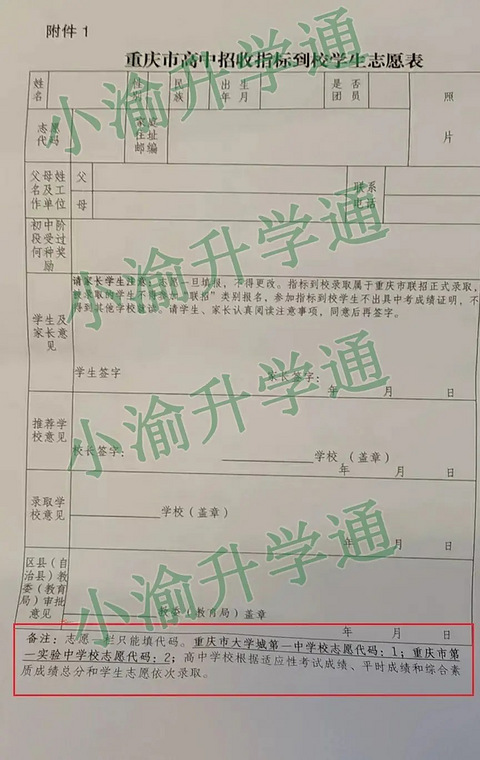 附件1
重庆市高中招收指标到校学生志愿表
姓名 性别 民族 出生年月 是否团员 照片
志愿代码 家庭住址邮编
父母姓名及工作单位 父 联系电话
母
初中阶段受过何种奖励
请家长学生注意：志愿一旦填报，不得更改。指标到校录取属于重庆市联招正式录取，
被录取的学生不得参加“联招”类别报名，参加指标到校学生不出具中考成绩证明，不
得到其他学校就读。请学生、家长认真阅读注意事项，同意后再签字。
学生及家长意见
学生签字 家长签字：
年 月 日
推荐学校意见
校长签字： 学校（盖章）
年 月 日
录取学校意见
学校（盖章）
年 月 日
区县（自治县）教委（教育局）审批意见
教委（教育局）盖章
年 月 日
备注：志愿一栏只能填代码。重庆市大学城第一中学校志愿代码：1；重庆市第
一实验中学校志愿代码：2；高中学校根据适应性考试成绩、平时成绩和综合素
质成绩总分和学生志愿依次录取。
小渝升学通
小渝升学通
小渝升学通
小渝升学通